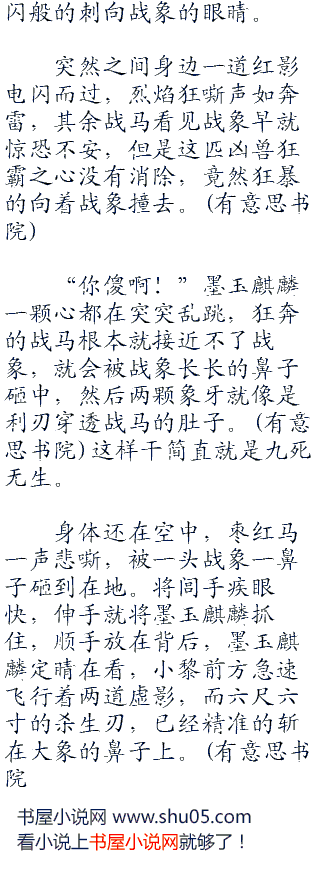 闪般的刺向战象的眼睛。
突然之间身边一道红影
电闪而过，烈焰狂嘶声如奔
雷，其余战马看见战象早就
惊恐不安，但是这匹凶兽狂
霸之心没有消除，竟然狂暴
的向着战象撞去。(有意思书
院)
“你傻啊！”墨玉麒麟
一颗心都在突突乱跳，狂奔
的战马根本就接近不了战
象，就会被战象长长的鼻子
砸中，然后两颗象牙就像是
利刃穿透战马的肚子。(有意
思书院)这样干简直就是九死
无生。
身体还在空中，枣红马
一声悲嘶，被一头战象一鼻
子砸到在地。将闾手疾眼
快，伸手就将墨玉麒麟抓
住，顺手放在背后，墨玉麒
麟定睛在看，小黎前方急速
飞行着两道虚影，而六尺六
寸的杀生刃，已经精准的斩
在大象的鼻子上。(有意思书
院
书屋小说网 www.shu05.com
看小说上书屋小说网就够了！